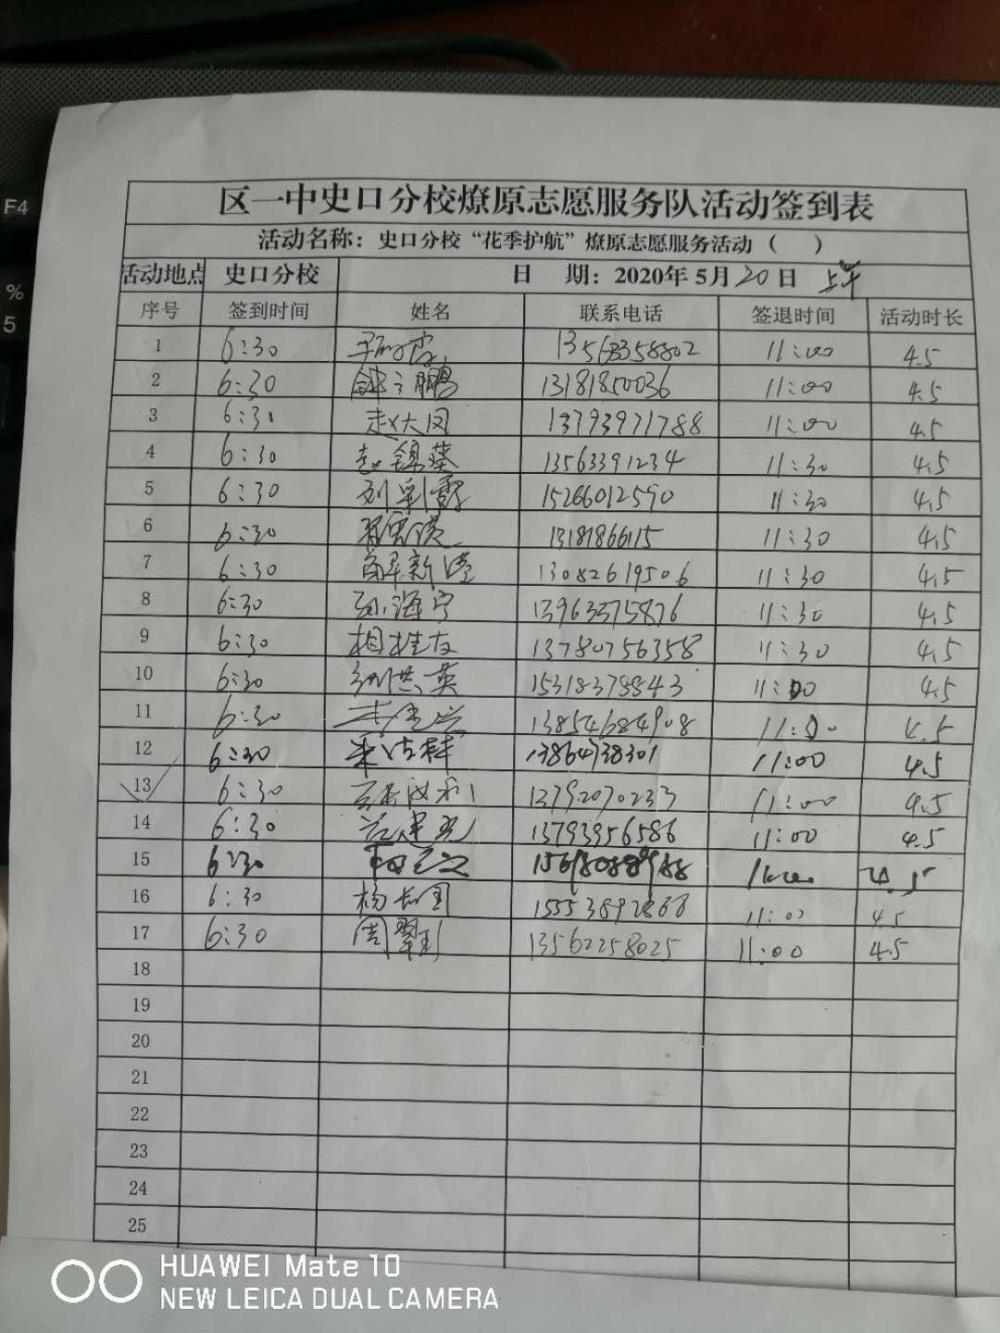 F4
%
5
区一中史口分校燎原志愿服务队活动签到表
活动名称：史口分校“花季护航”燎原志愿服务活动（ ）
活动地点 史口分校 日 期：2020年 5月20日 上午
序号 签到时间 姓名 联系电话 签退时间 活动时长
1 6:30 13563358802 11:00 4.5
2 6:30 13181850036 11:00 4.5
3 6:30 赵大凤 13793971788 11:00 4.5
4 6:30 赵锦葵 13563391234 11:30 4.5
5 6:30 15266012590 11:30 4.5
6 6:30 13181866115 11:30 4.5
7 6:30 薛新 13082619506 11:30 4.5
8 6:30 孙海宁 13963375876 11:30 4.5
9 6:30 相桂友 13780756358 11:30 4.5
10 6:30 刘洪英 15318378843 11:00 4.5
11 6:30 13854684908 11:00 4.5
12 6:30 13864738301 11:00 4.5
13 6:30 13792070233 11:00 4.5
14 6:30 范建 13793956586 11:00 4.5
15 6:30 4.5
16 6:30 杨 15553892868 11:00 4.5
17 6:30 周翠 13562258025 11:00 4.5
18
19
20
21
22
23
24
25
HUAWEI Mate 10
NEW LEICA DUAL CAMERA